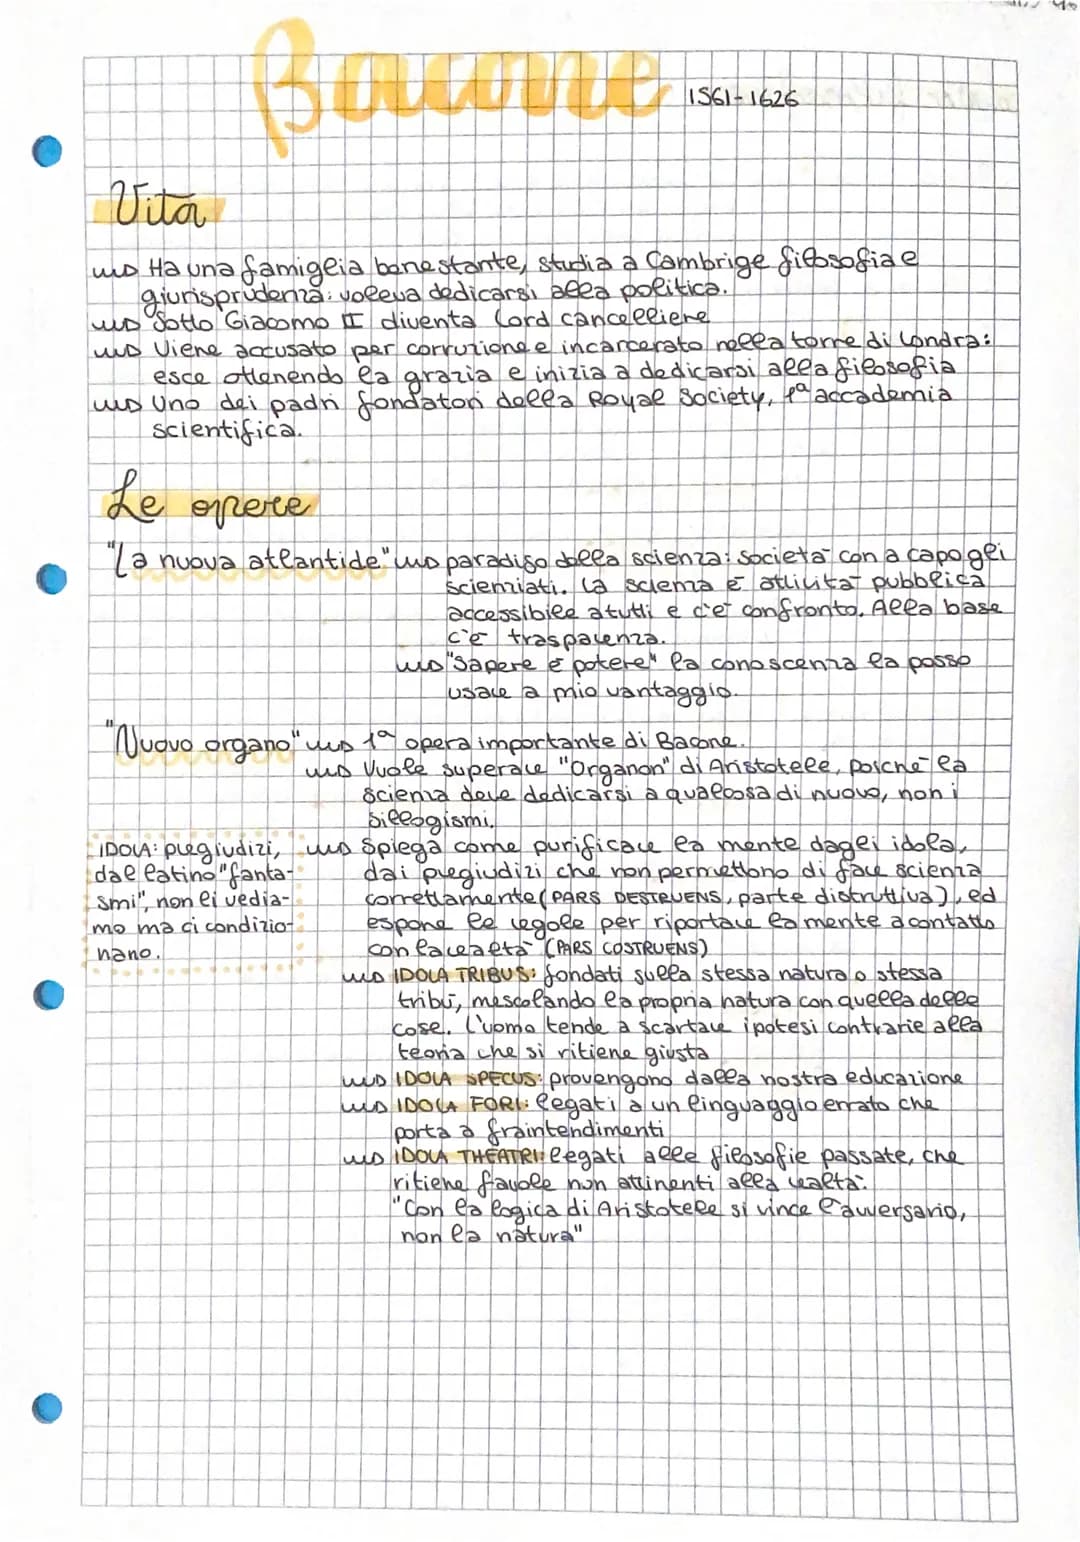 Bacone 1561-1626
Vita
Ha una famiglia benestante, studia a Cambrige filosofia e
giurisprudenza: voleva dedicarsi alla politica.
Sotto Giacomo II diventa Lord cancelliere
Viene accusato per corruzione e incarcerato nella torre di Londra:
esce ottenendo la grazia e inizia a dedicarsi alla filosofia
Uno dei padri fondatori della Royal Society, 1ª accademia
scientifica.
Le opere
"La nuova atlantide" paradiso della scienza: società con a capo gli
scienziati. La scienza è attività pubblica
accessibile a tutti e c'è confronto. Alla base
c'è trasparenza.
"Sapere è potere" la conoscenza la posso
usare a mio vantaggio.
"Nuovo organo" 1ª opera importante di Bacone.
Vuole superare "Organon" di Aristotele, poiché la
scienza deve dedicarsi a qualcosa di nuovo, non i
sillogismi.
IDOLA: pregiudizi,
dal latino "fanta-
smi", non li vedia-
mo ma ci condizio-
nano.
Spiega come purificare la mente dagli idola,
dai pregiudizi che non permettono di fare scienza
correttamente (PARS DESTRUENS, parte distruttiva), ed
espone le regole per riportare la mente a contatto
con la realtà (PARS COSTRUENS)
IDOLA TRIBUS: fondati sulla stessa natura o stessa
tribù, mescolando la propria natura con quella delle
cose. L'uomo tende a scartare ipotesi contrarie alla
teoria che si ritiene giusta
IDOLA SPECUS: provengono dalla nostra educazione
IDOLA FORI: legati a un linguaggio errato che
porta a fraintendimenti
IDOLA THEATRI: legati alle filosofie passate, che
ritiene favole non attinenti alla realtà:
"Con la logica di Aristotele si vince l'avversario,
non la natura"